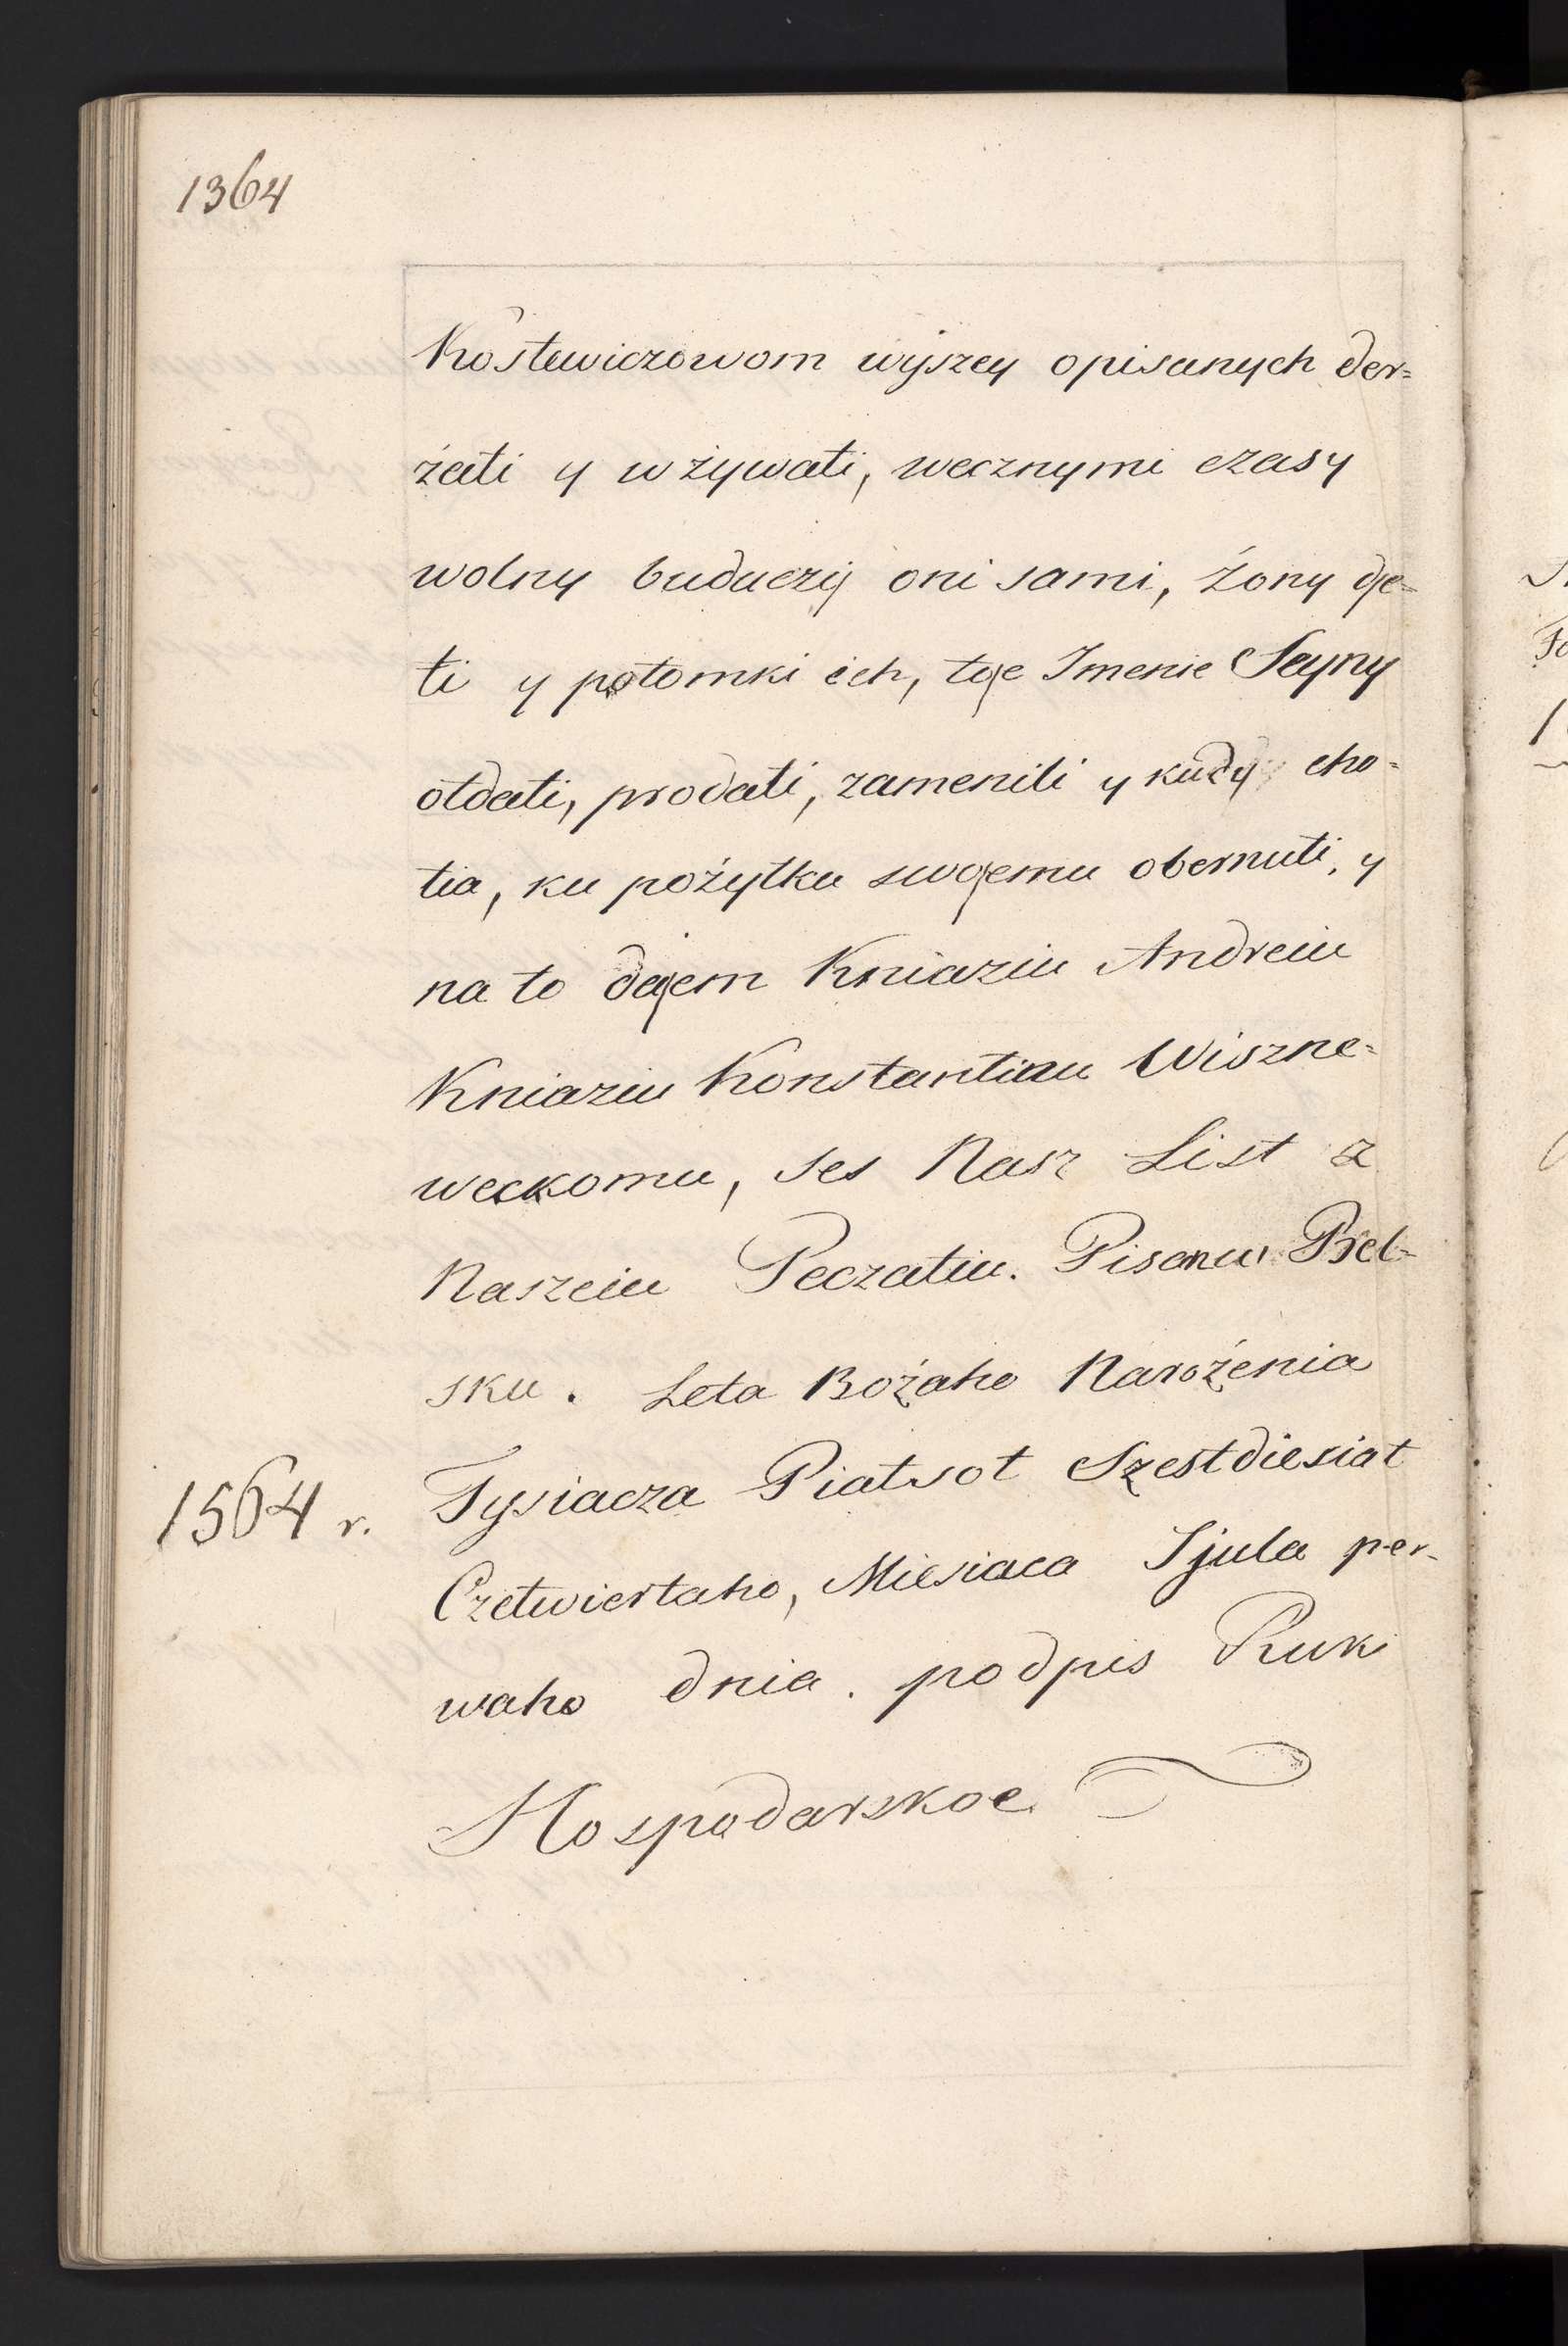 1364
Kostewiczowom wyszey opisanych der=
żati y wżywati, wecznymi czasy
wolny buduczij oni sami, żony dje=
ti y potomki ich, toje Imenie Seyny
otdati, prodati, zameniti y kudy cho=
tia, ku pożytku swojemu obernuti, y
na to dajem Kniaziu Andreiu
Kniaziu Konstantinu Wiszne=
weckomu, ses Nasz List z
Naszeiu Peczatiu. Pisan u Bel=
sku. Leta Bożaho Narożenia
1564 r. Tysiacza Piatsot Szestdiesiat
Czetwiertaho, Miesiaca Ijula per=
waho dnia. podpis Ruki
Hospodarskoe